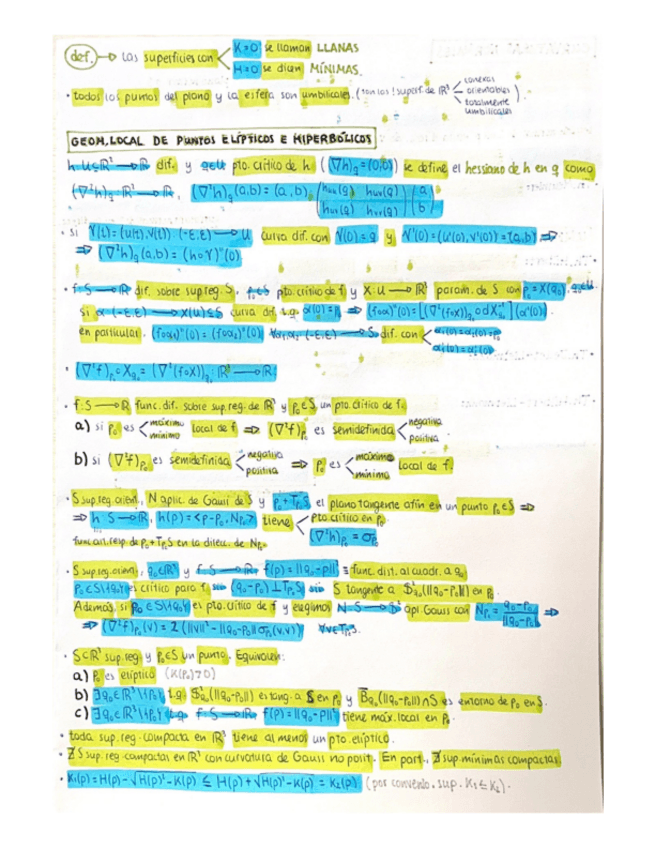 def. → Las superficies con < K=0 se llaman LLANAS
H=0 se dicen MÍNIMAS.
· todos los puntos del plano y la esfera son umbilicales. (son las ! superf. de ℝ³ < conexas
orientables
totalmente umbilicales)
GEOM. LOCAL DE PUNTOS ELÍPTICOS E HIPERBÓLICOS
h: U⊆ℝ² → ℝ dif. y q∈U pto. crítico de h ((∇h)q = (0,0)) se define el hessiano de h en q como
(∇²h)q: ℝ² → ℝ, (∇²h)q(a,b) = (a,b) (huu(q) huv(q) / huv(q) hvv(q)) (a / b)
· si γ(t) = (u(t), v(t)) (-ε,ε) → U curva dif. con γ(0)=q y γ'(0) = (u'(0), v'(0)) = (a,b) ⇒
⇒ (∇²h)q(a,b) = (h∘γ)''(0)
· f: S → ℝ dif. sobre sup. reg. S, p₀∈S pto. crítico de f y X: U → ℝ³ param. de S con p₀ = X(q₀), q₀∈U
si α: (-ε,ε) → X(U)⊆S curva dif. t.q. α(0)=p₀ ⇒ (f∘α)''(0) = [(∇²(f∘X))q₀ ∘ dX⁻¹q₀](α'(0))
en particular, (f∘α₁)''(0) = (f∘α₂)''(0) ∀α₁,α₂: (-ε,ε) → S dif. con < α₁(0)=α₂(0)=p₀
α₁'(0)=α₂'(0)
· (∇²f)p₀ ∘ Xq₀ = (∇²(f∘X))q₀: ℝ² → ℝ.
· f: S → ℝ func. dif. sobre sup. reg. de ℝ³ y p₀∈S un pto. crítico de f.
a) si p₀ es < máximo / mínimo local de f ⇒ (∇²f)p₀ es semidefinida < negativa / positiva.
b) si (∇²f)p₀ es semidefinida < negativa / positiva ⇒ p₀ es < máximo / mínimo local de f.
· S sup. reg. orient., N aplic. de Gauss de S y p₀ + Tp₀S el plano tangente afín en un punto p₀∈S ⇒
⇒ h: S → ℝ, h(p) = <p-p₀, Np₀> tiene < pto. crítico en p₀
(∇²h)p₀ = σp₀
func. alt. resp. de p₀+Tp₀S en la direcc. de Np₀
· S sup. reg. orient., q₀∈ℝ³ y f: S → ℝ f(p) = ||q₀-p||² ≡ func. dist. al cuadr. a q₀
p₀∈S\{q₀} es crítico para f sii (q₀-p₀) ⊥ Tp₀S sii S tangente a 𝕊²q₀(||q₀-p₀||) en p₀
Además, si p₀∈S\{q₀} es pto. crítico de f y elegimos N: S → 𝕊² apl. Gauss con Np₀ = q₀-p₀ / ||q₀-p₀|| ⇒
⇒ (∇²f)p₀(v) = 2(||v||² - ||q₀-p₀|| σp₀(v,v)) ∀v∈Tp₀S.
· S⊂ℝ³ sup. reg. y p₀∈S un punto. Equivalen:
a) p₀ es elíptico (K(p₀)>0)
b) ∃q₀∈ℝ³\{p₀} t.q. 𝕊²q₀(||q₀-p₀||) es tang. a S en p₀ y B̄q₀(||q₀-p₀||)∩S es entorno de p₀ en S.
c) ∃q₀∈ℝ³\{p₀} t.q. f: S → ℝ, f(p) = ||q₀-p||² tiene máx. local en p₀.
· toda sup. reg. compacta en ℝ³ tiene al menos un pto. elíptico.
· ∄ S sup. reg. compactas en ℝ³ con curvatura de Gauss no posit. En part., ∄ sup. mínimas compactas.
· K₁(p) = H(p) - √H(p)²-K(p) ≤ H(p) + √H(p)²-K(p) = K₂(p). (por convenio, sup. K₁ ≤ K₂).